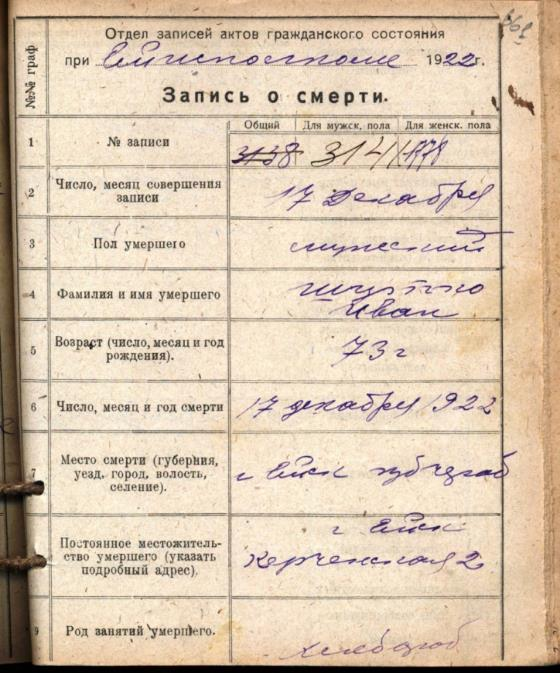 Отдел записей актов гражданского состояния
при Ейисполкоме 1922г.
Запись о смерти.
№№ граф
Общий Для мужск. пола Для женск. пола
1 № записи 314
2 Число, месяц совершения
записи 17 декабря
3 Пол умершего мужской
4 Фамилия и имя умершего
Иван
5 Возраст (число, месяц и год
рождения). 73 г
6 Число, месяц и год смерти 17 декабря 1922
7 Место смерти (губерния,
уезд, город, волость,
селение). г Ейск
Постоянное местожитель-
ство умершего (указать
подробный адрес). г Ейск
Керченская 2
9 Род занятий умершего. хлебороб